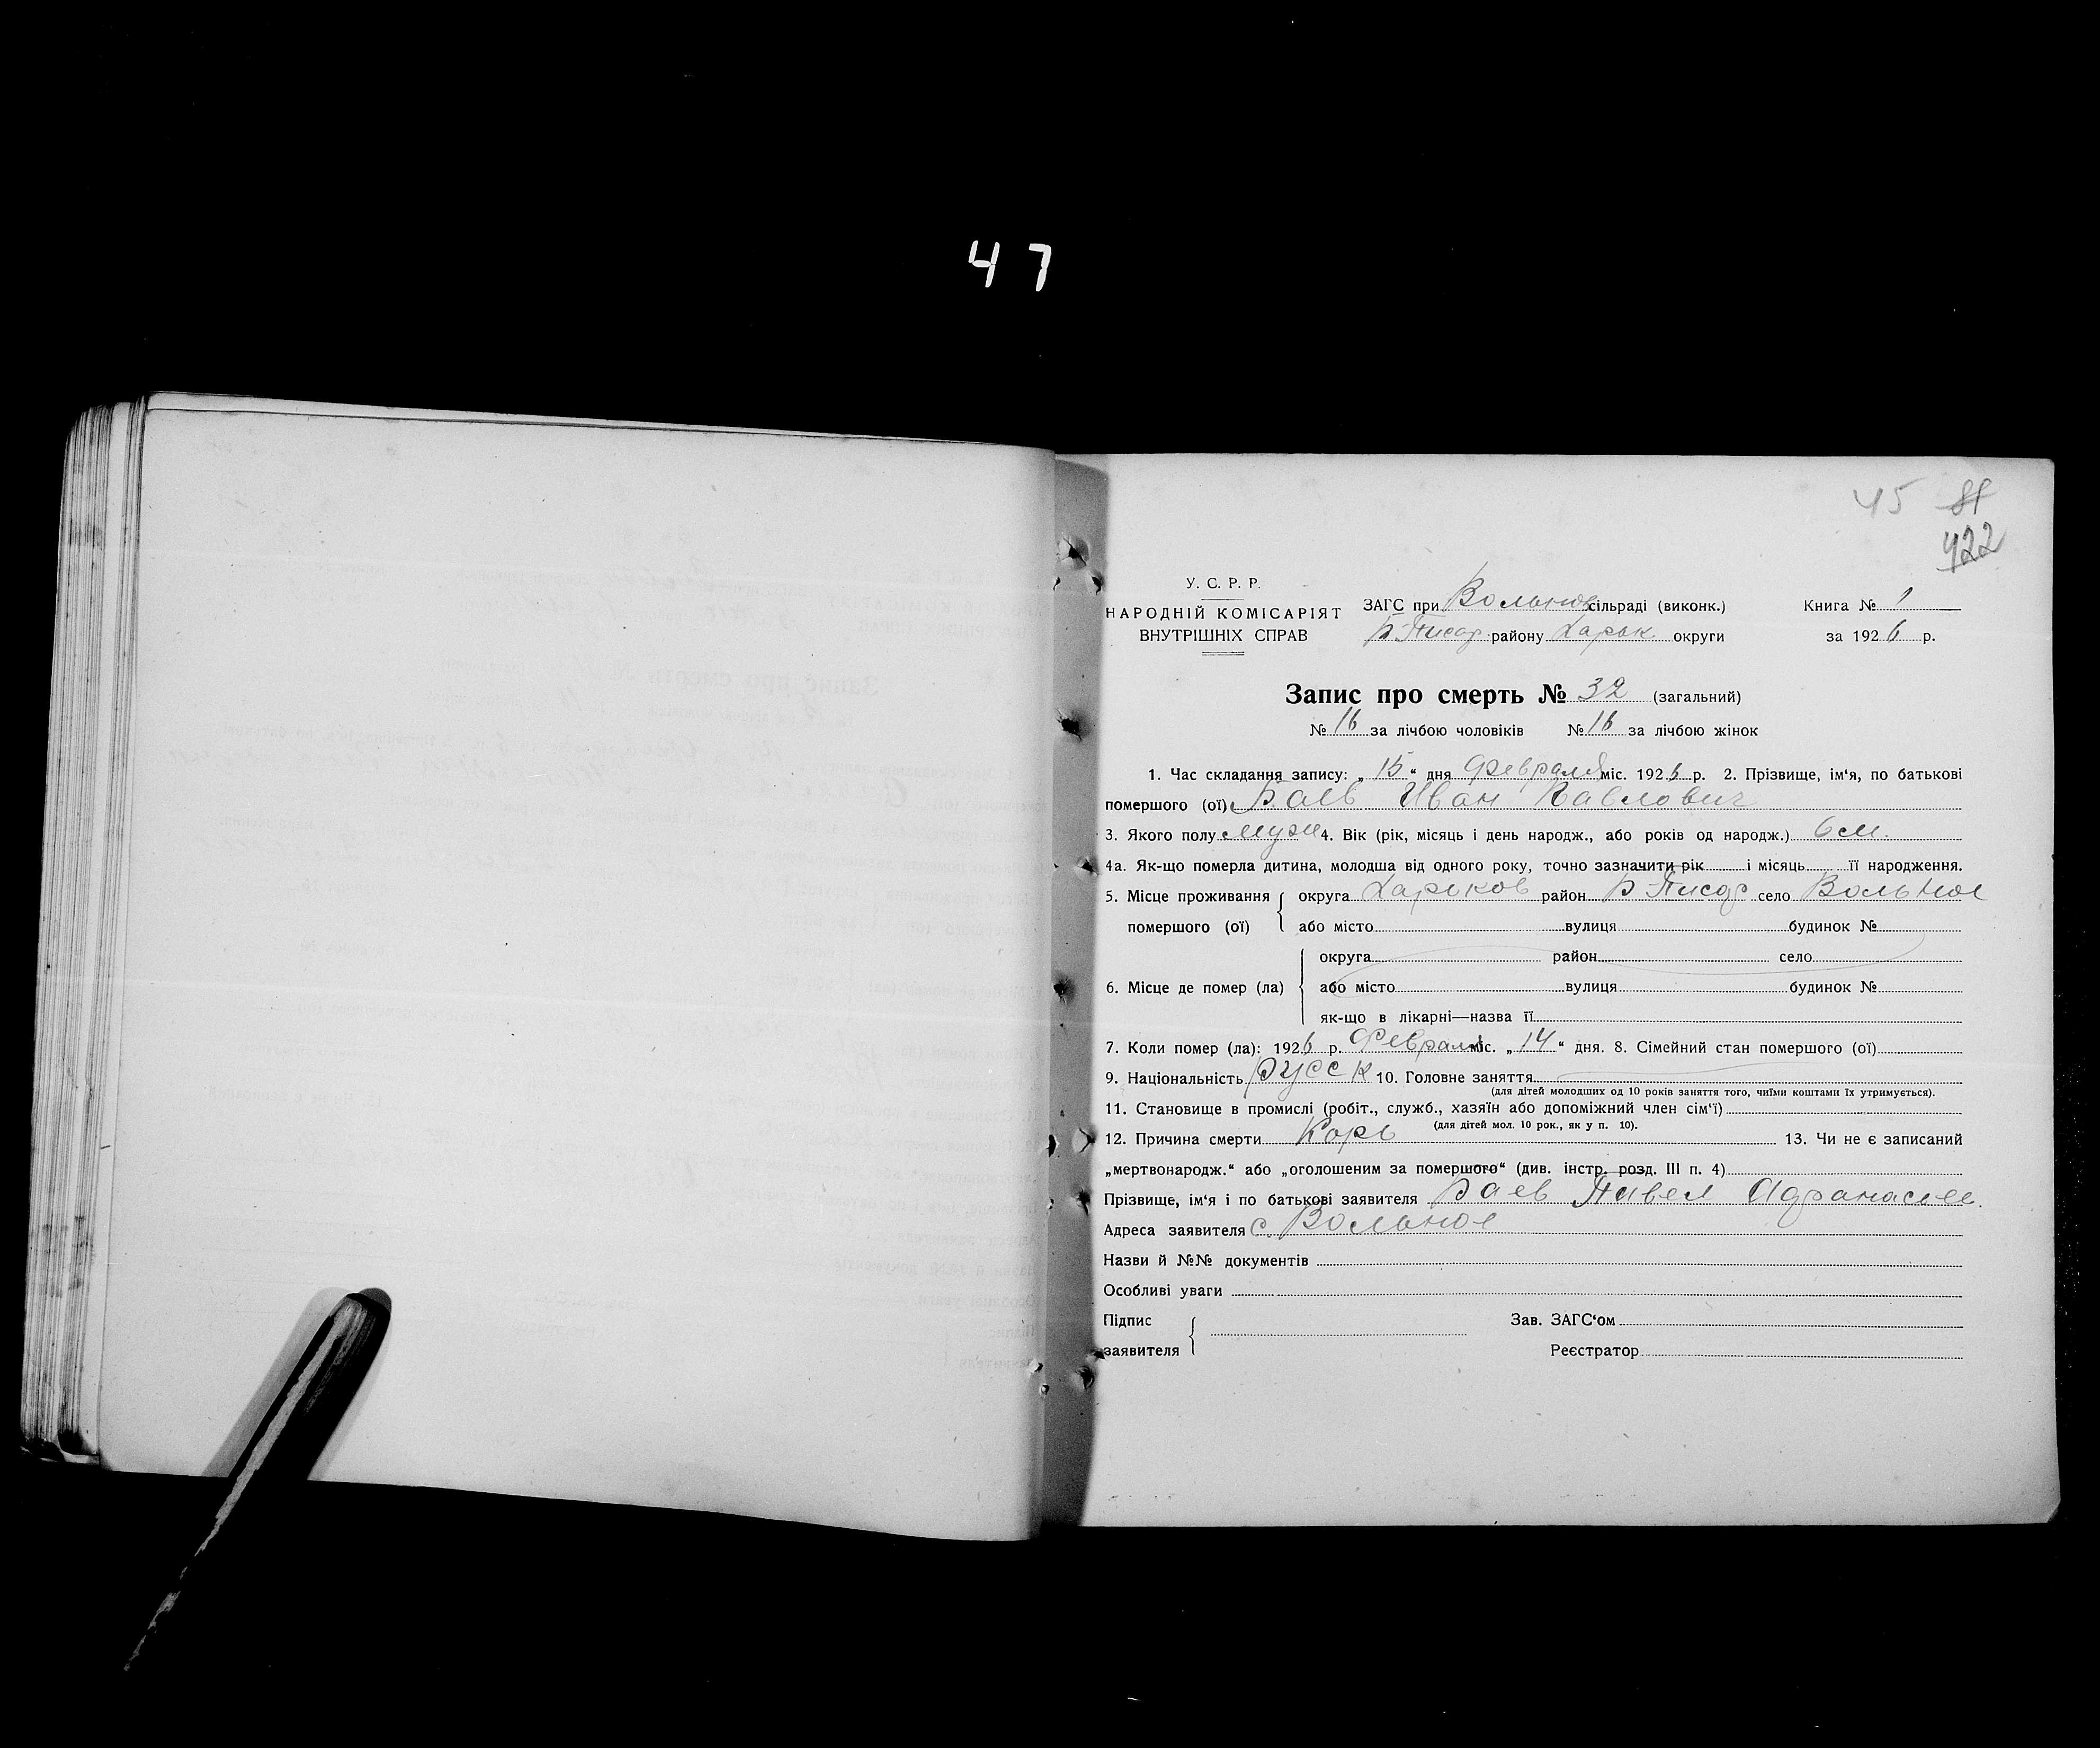 47
45 81
422
У. С. Р. Р.
НАРОДНІЙ КОМІСАРІЯТ
ВНУТРІШНІХ СПРАВ
ЗАГС при Вольнов сільраді (виконк.)
Б-Писар. району Харьк. округи
Книга № 1
за 1926 р.
Запис про смерть № 32 (загальний)
№ 16 за лічбою чоловіків № 16 за лічбою жінок
1. Час складання запису: „15“ дня Февраля міс. 1926 р. 2. Прізвище, ім‘я, по батькові
помершого (ої) Баев Иван Павлович
3. Якого полу муж 4. Вік (рік, місяць і день народж., або років од народж.) 6 м.
4а. Як-що померла дитина, молодша від одного року, точно зазначити рік і місяць її народження.
5. Місце проживання помершого (ої) округа Харьков район Б-Писар село Вольное
або місто вулиця будинок №
6. Місце де помер (ла) округа район село
або місто вулиця будинок №
як-що в лікарні—назва її
7. Коли помер (ла): 1926 р. Февраля міс. „14“ дня. 8. Сімейний стан помершого (ої)
9. Національність Русск 10. Головне заняття
(для дітей молодших од 10 років заняття того, чиїми коштами їх утримується).
11. Становище в промислі (робіт., служб., хазяїн або допоміжний член сім‘ї)
(для дітей мол. 10 рок., як у п. 10).
12. Причина смерти Корь 13. Чи не є записаний
„мертвонародж.“ або „оголошеним за помершого“ (див. інстр. розд. III п. 4)
Прізвище, ім‘я і по батькові заявителя Баев Павел Афанасьев.
Адреса заявителя с. Вольное
Назви й №№ документів
Особливі уваги
Підпис
заявителя
Зав. ЗАГС‘ом
Реєстратор